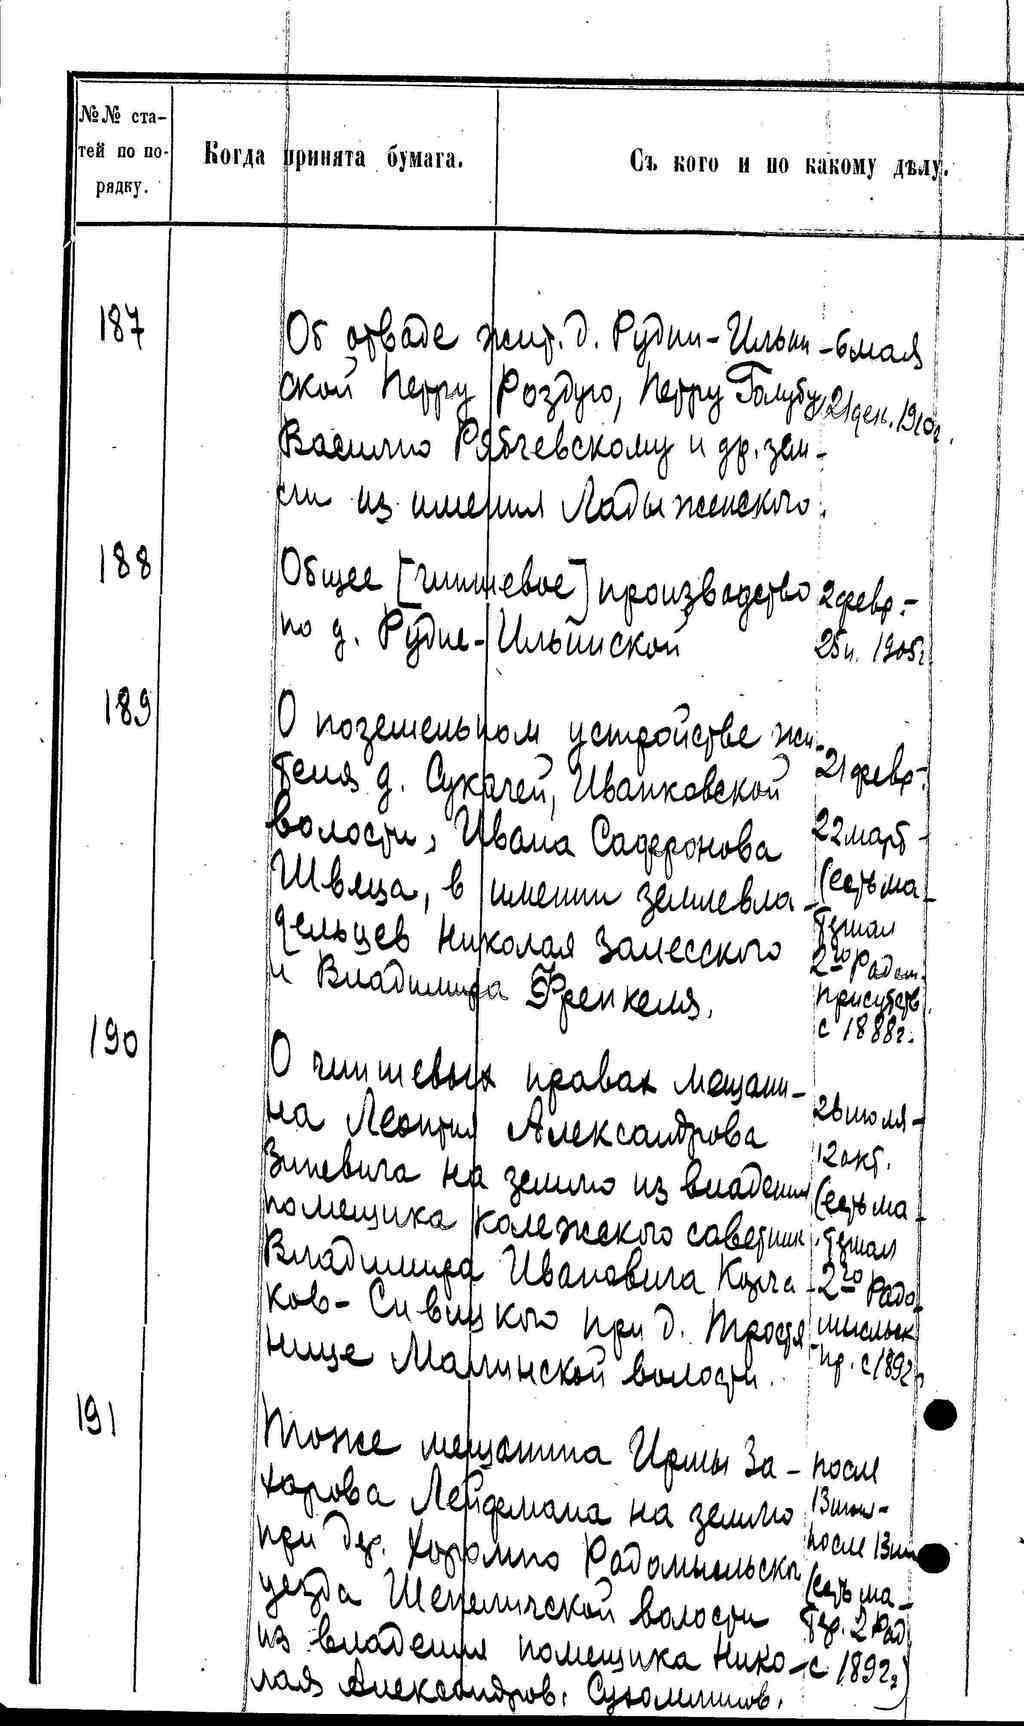 №№ ста-
тей по по-
рядку.
Когда принята бумага.
Съ кого и по какому дѣлу.
187
Об отводе жит. д. Рудни-Ильин
ской Петру Роздуго, Петру Голубу,
Василию Рябчевскому и др. зем-
ли из имения Ладыженского.
6 мая
21 дек. 1910г.
188
Общее [чиншевое] производство
по д. Рудне-Ильинской
2 февр.-
25 н. 1905г.
189
О поземельном устройстве жи-
теля д. Сукачей, Иванковской
волости, Ивана Сафронова
Швеца, в имении землевла-
дельцев Николая Залесского
и Владимира Френкеля.
21 февр-
22 март
(есть ма-
териал
2го Радом.
присутств.
с 1888г.
190
О чиншевых правах мещани-
на Леонтия Александрова
Зиневича на землю из владения
помещика колежского советник
Владимира Ивановича
ков-Сивицкого при д. Тростя-
нице Малинской волости.
26 июля-
12 окт.
(есть ма-
териал
2го Радо-
мысльск
пр. с 1892г.
191
Тоже мещанина Ирмы За-
харова Лейфмана на землю
при дер. Хоромно Радомысльско
уезда Шепеличской волости
из владения помещика Нико-
лая Александров.
после
13 июл-
после 13
(есть ма-
тер. 2 Рад
с 1892г)